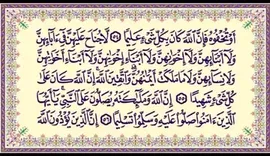 أَوْ تُخْفُوهُ فَإِنَّ ٱللَّهَ كَانَ بِكُلِّ شَىْءٍ عَلِيمًا ۝٥٤ لَّا جُنَاحَ عَلَيْهِنَّ فِىٓ ءَابَآئِهِنَّ
وَلَآ أَبْنَآئِهِنَّ وَلَآ إِخْوَٰنِهِنَّ وَلَآ أَبْنَآءِ إِخْوَٰنِهِنَّ وَلَآ أَبْنَآءِ أَخَوَٰتِهِنَّ
وَلَا نِسَآئِهِنَّ وَلَا مَا مَلَكَتْ أَيْمَٰنُهُنَّ وَٱتَّقِينَ ٱللَّهَ إِنَّ ٱللَّهَ كَانَ عَلَىٰ
كُلِّ شَىْءٍ شَهِيدًا ۝٥٥ إِنَّ ٱللَّهَ وَمَلَٰٓئِكَتَهُۥ يُصَلُّونَ عَلَى ٱلنَّبِىِّ يَٰٓأَيُّهَا
ٱلَّذِينَ ءَامَنُوا۟ صَلُّوا۟ عَلَيْهِ وَسَلِّمُوا۟ تَسْلِيمًا ۝٥٦ إِنَّ ٱلَّذِينَ يُؤْذُونَ ٱللَّهَ